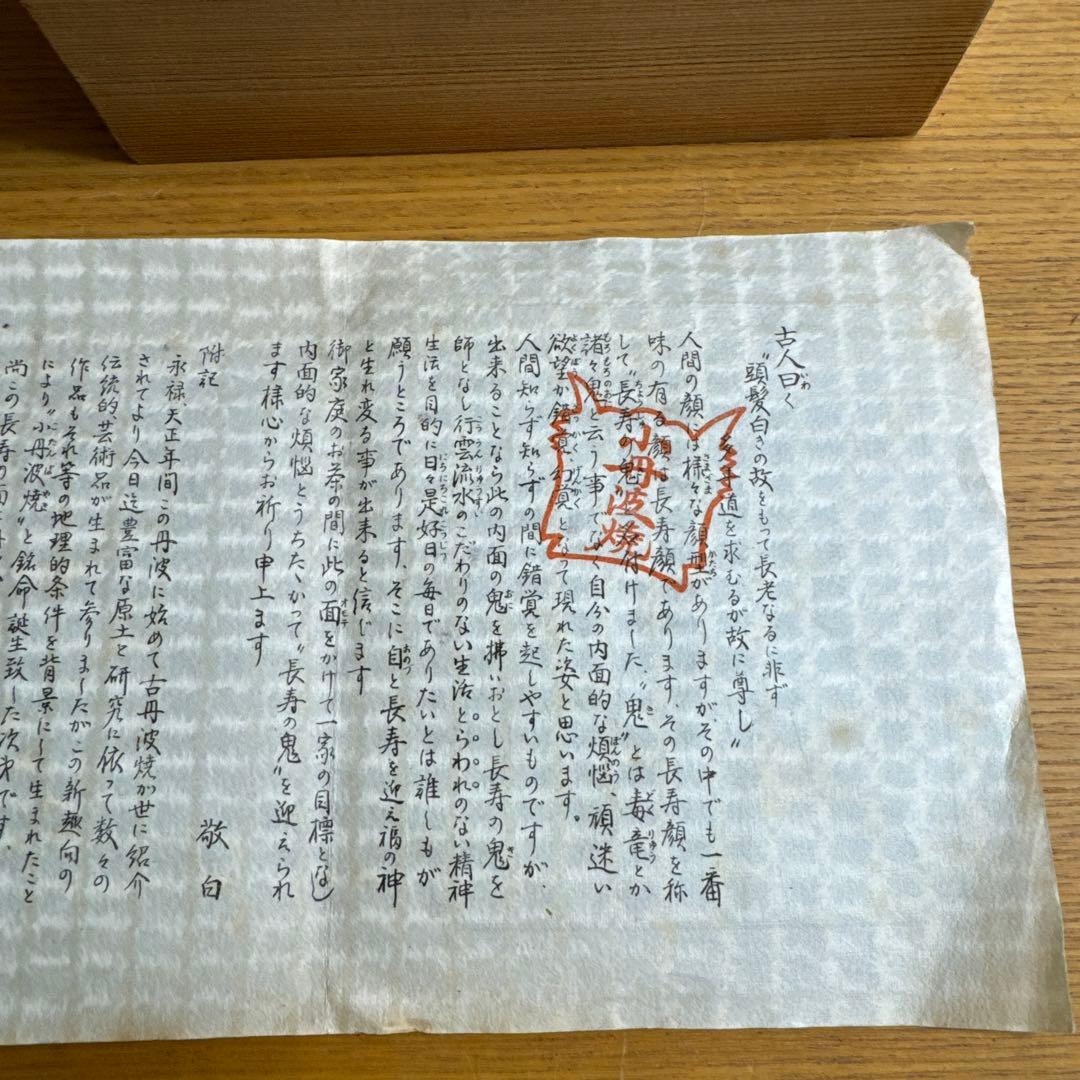 古人曰く
"頭髪白きの故をもって長老なるに非ず
道を求むるが故に尊し"
人間の顔には様々な顔型がありますが、その中でも一番
味の有る顔は長寿顔であります、その長寿顔を称
して"長寿の鬼"と名付けました、"鬼"とは毒竜とか
諸々鬼と云う事でなく自分の内面的な煩悩、頑迷い
欲望が錯覚、幻覚となって現れた姿と思います。
人間知らず知らずの間に錯覚を起しやすいものですが、
出来ることなら此の内面の鬼を拂いおとし長寿の鬼を
師となし行雲流水のこだわりのない生活とらわれのない精神
生活を目的に日々是好日の毎日でありたいとは誰しもが
願うところであります、そこに自と長寿を迎え福の神
と生れ変る事が出来ると信じます
御家庭のお茶の間に此の面をかけて一家の目標となし
内面的な煩悩とうちたゝかって"長寿の鬼"を迎えられ
ます様心からお祈り申上ます
敬白
附記
永禄、天正年間この丹波に始めて古丹波焼が世に紹介
されてより今日迄豊富な原土と研究に依って数々の
伝統的、芸術品が生まれて参りましたがこの新趣向の
作品もそれ等の地理的条件を背景にして生まれたこと
により"小丹波焼"と銘命誕生致した次第です、
尚この長寿の面
小丹波焼